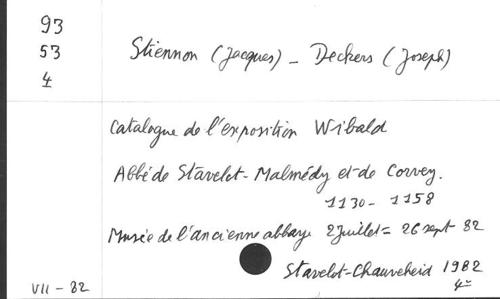 93
53
4
Stiennon (Jacques) - Deckers (Joseph)
Catalogue de l'exposition Wibald
Abbé de Stavelot-Malmédy et de Corvey.
1130 - 1158
Musée de l'ancienne abbaye 2 Juillet = 26 sept 82
Stavelot-Chauveheid 1982
4°
VII - 82